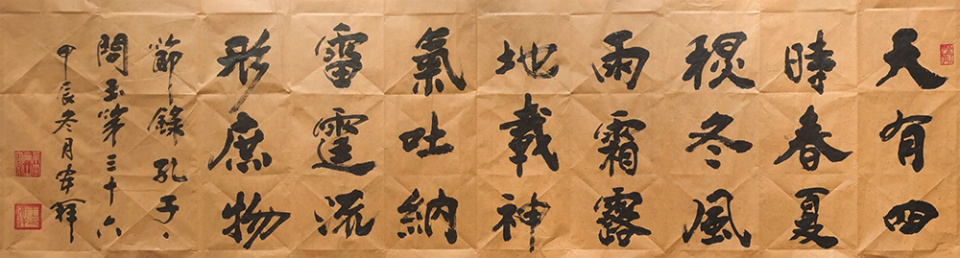 天有四
時春夏
秋冬風
雨霜露
地載神
氣吐納
雷霆流
形庶物
節錄孔子
問玉第三十六
甲辰冬月